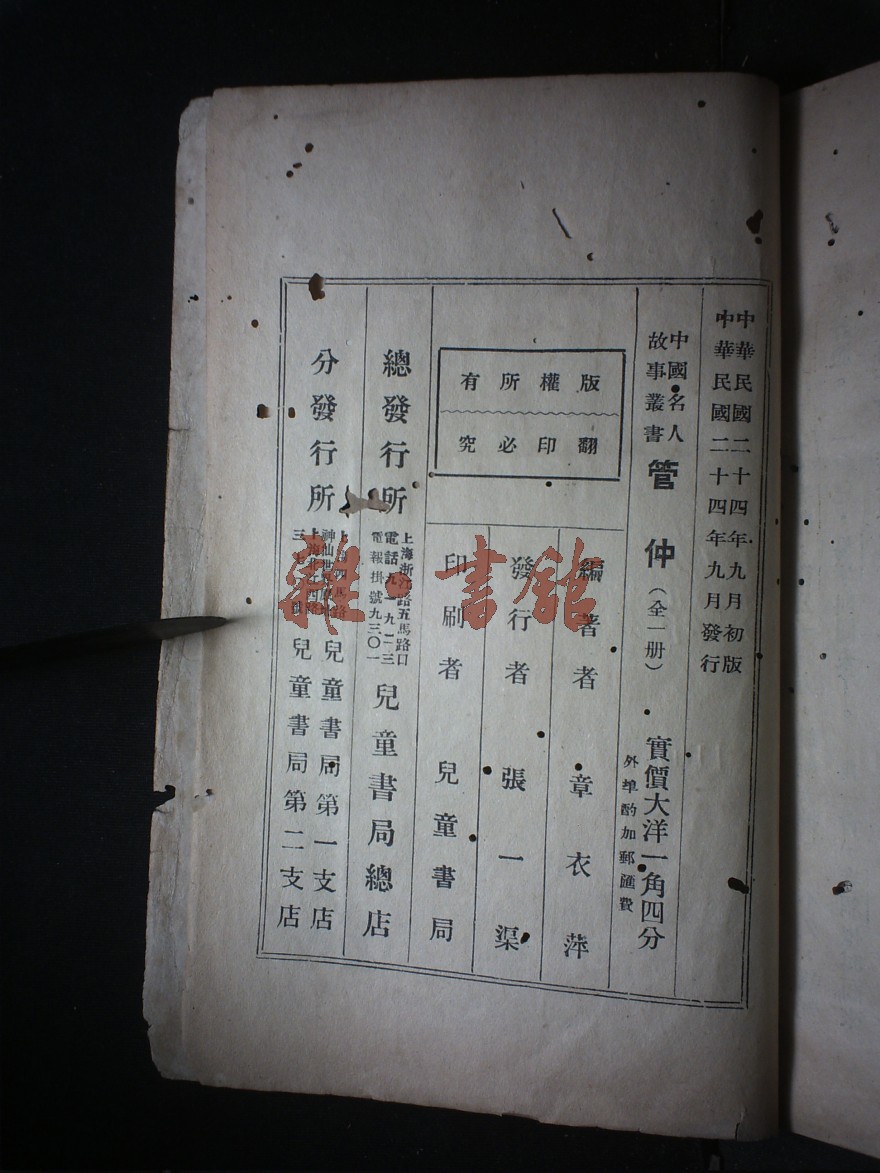 中華民國二十四年九月初版
中華民國二十四年九月發行
中國名人
故事叢書
管仲
(全一册)
實價大洋一角四分
外埠酌加郵匯費
版權所有
翻印必究
編著者 章衣萍
發行者 張一渠
印刷者 兒童書局
總發行所
上海浙江路五馬路口
電話九一九二三
電報掛號九三〇一
兒童書局總店
分發行所
兒童書局第一支店
兒童書局第二支店
雜書館